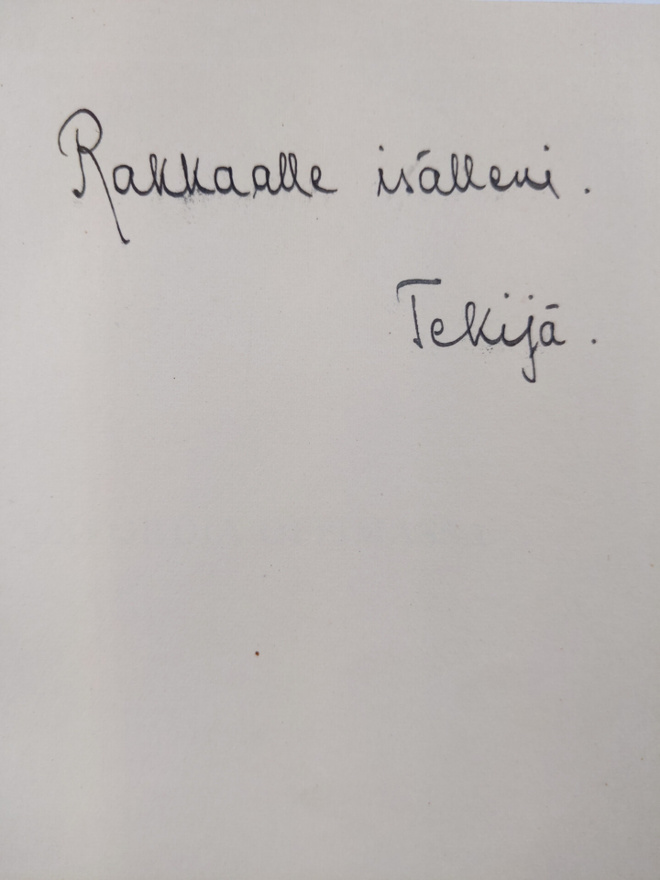 Rakkaalle isälleni.
Tekijä.